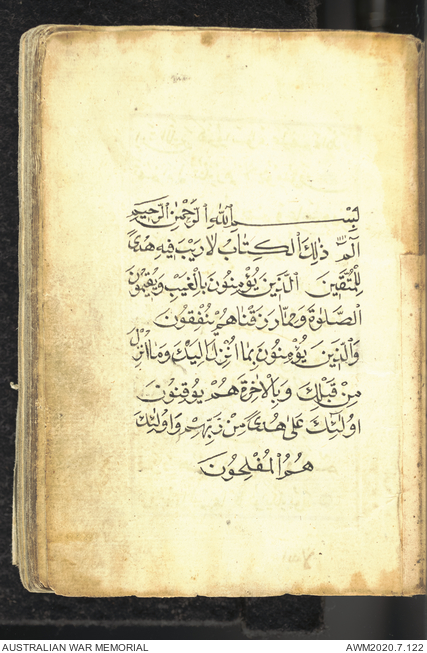 بِسْمِ اللّٰهِ الرَّحْمٰنِ الرَّحِيمِ
الٓمّٓ ذٰلِكَ الْكِتَابُ لَا رَيْبَ فِيهِ هُدًى
لِلْمُتَّقِينَ الَّذِينَ يُؤْمِنُونَ بِالْغَيْبِ وَيُقِيمُونَ
الصَّلٰوةَ وَمِمَّا رَزَقْنَاهُمْ يُنْفِقُونَ
وَالَّذِينَ يُؤْمِنُونَ بِمَا اُنْزِلَ اِلَيْكَ وَمَا اُنْزِلَ
مِنْ قَبْلِكَ وَبِالْاٰخِرَةِ هُمْ يُوقِنُونَ
اُولٰئِكَ عَلٰى هُدًى مِنْ رَبِّهِمْ وَاُولٰئِكَ
هُمُ الْمُفْلِحُونَ
AUSTRALIAN WAR MEMORIAL
AWM2020.7.122